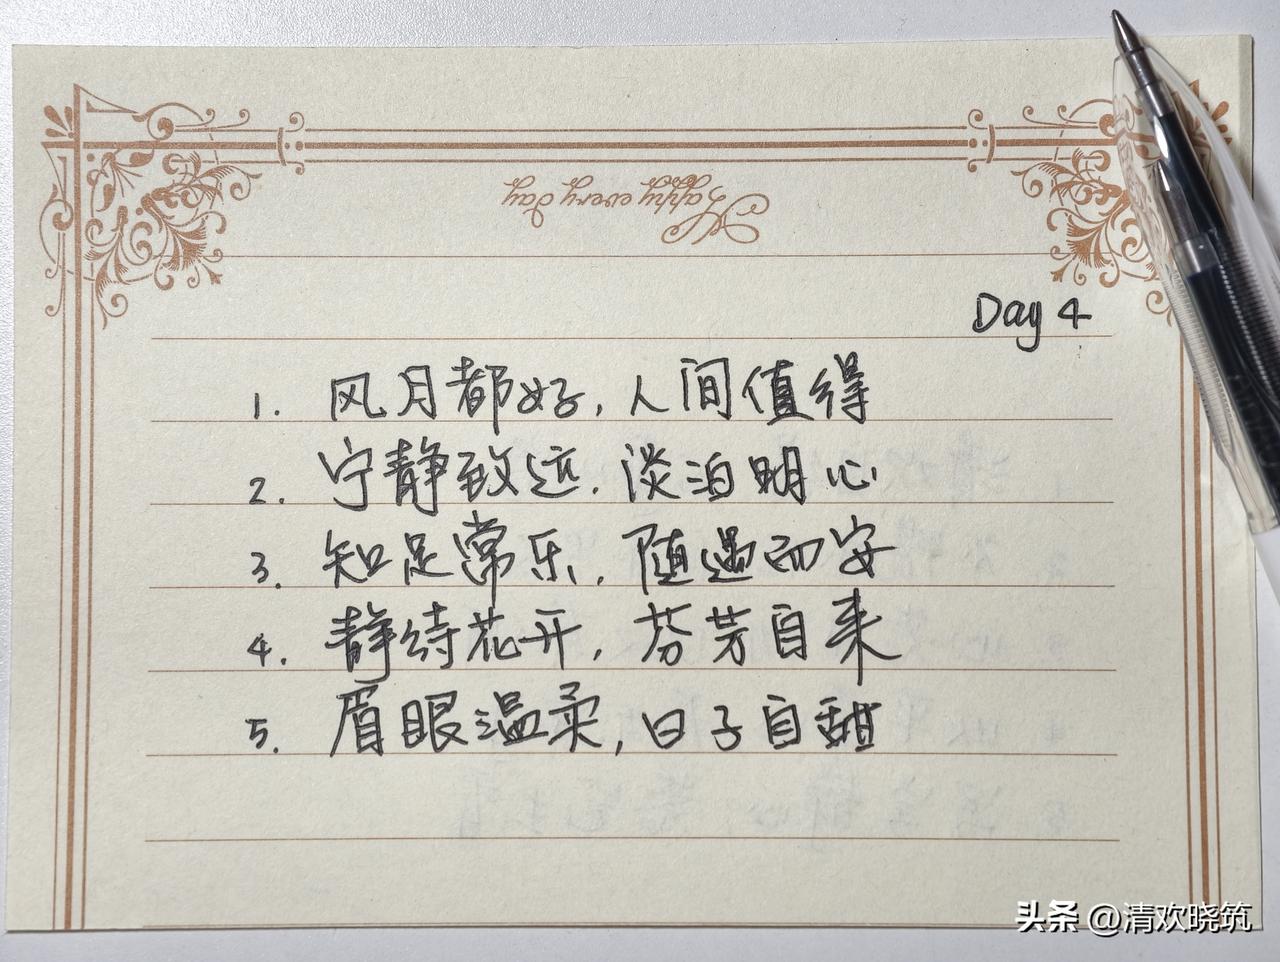 Happy every day
Day 4
1. 风月都好，人间值得
2. 宁静致远，淡泊明心
3. 知足常乐，随遇而安
4. 静待花开，芬芳自来
5. 眉眼温柔，日子自甜
头条 @清欢晓筑